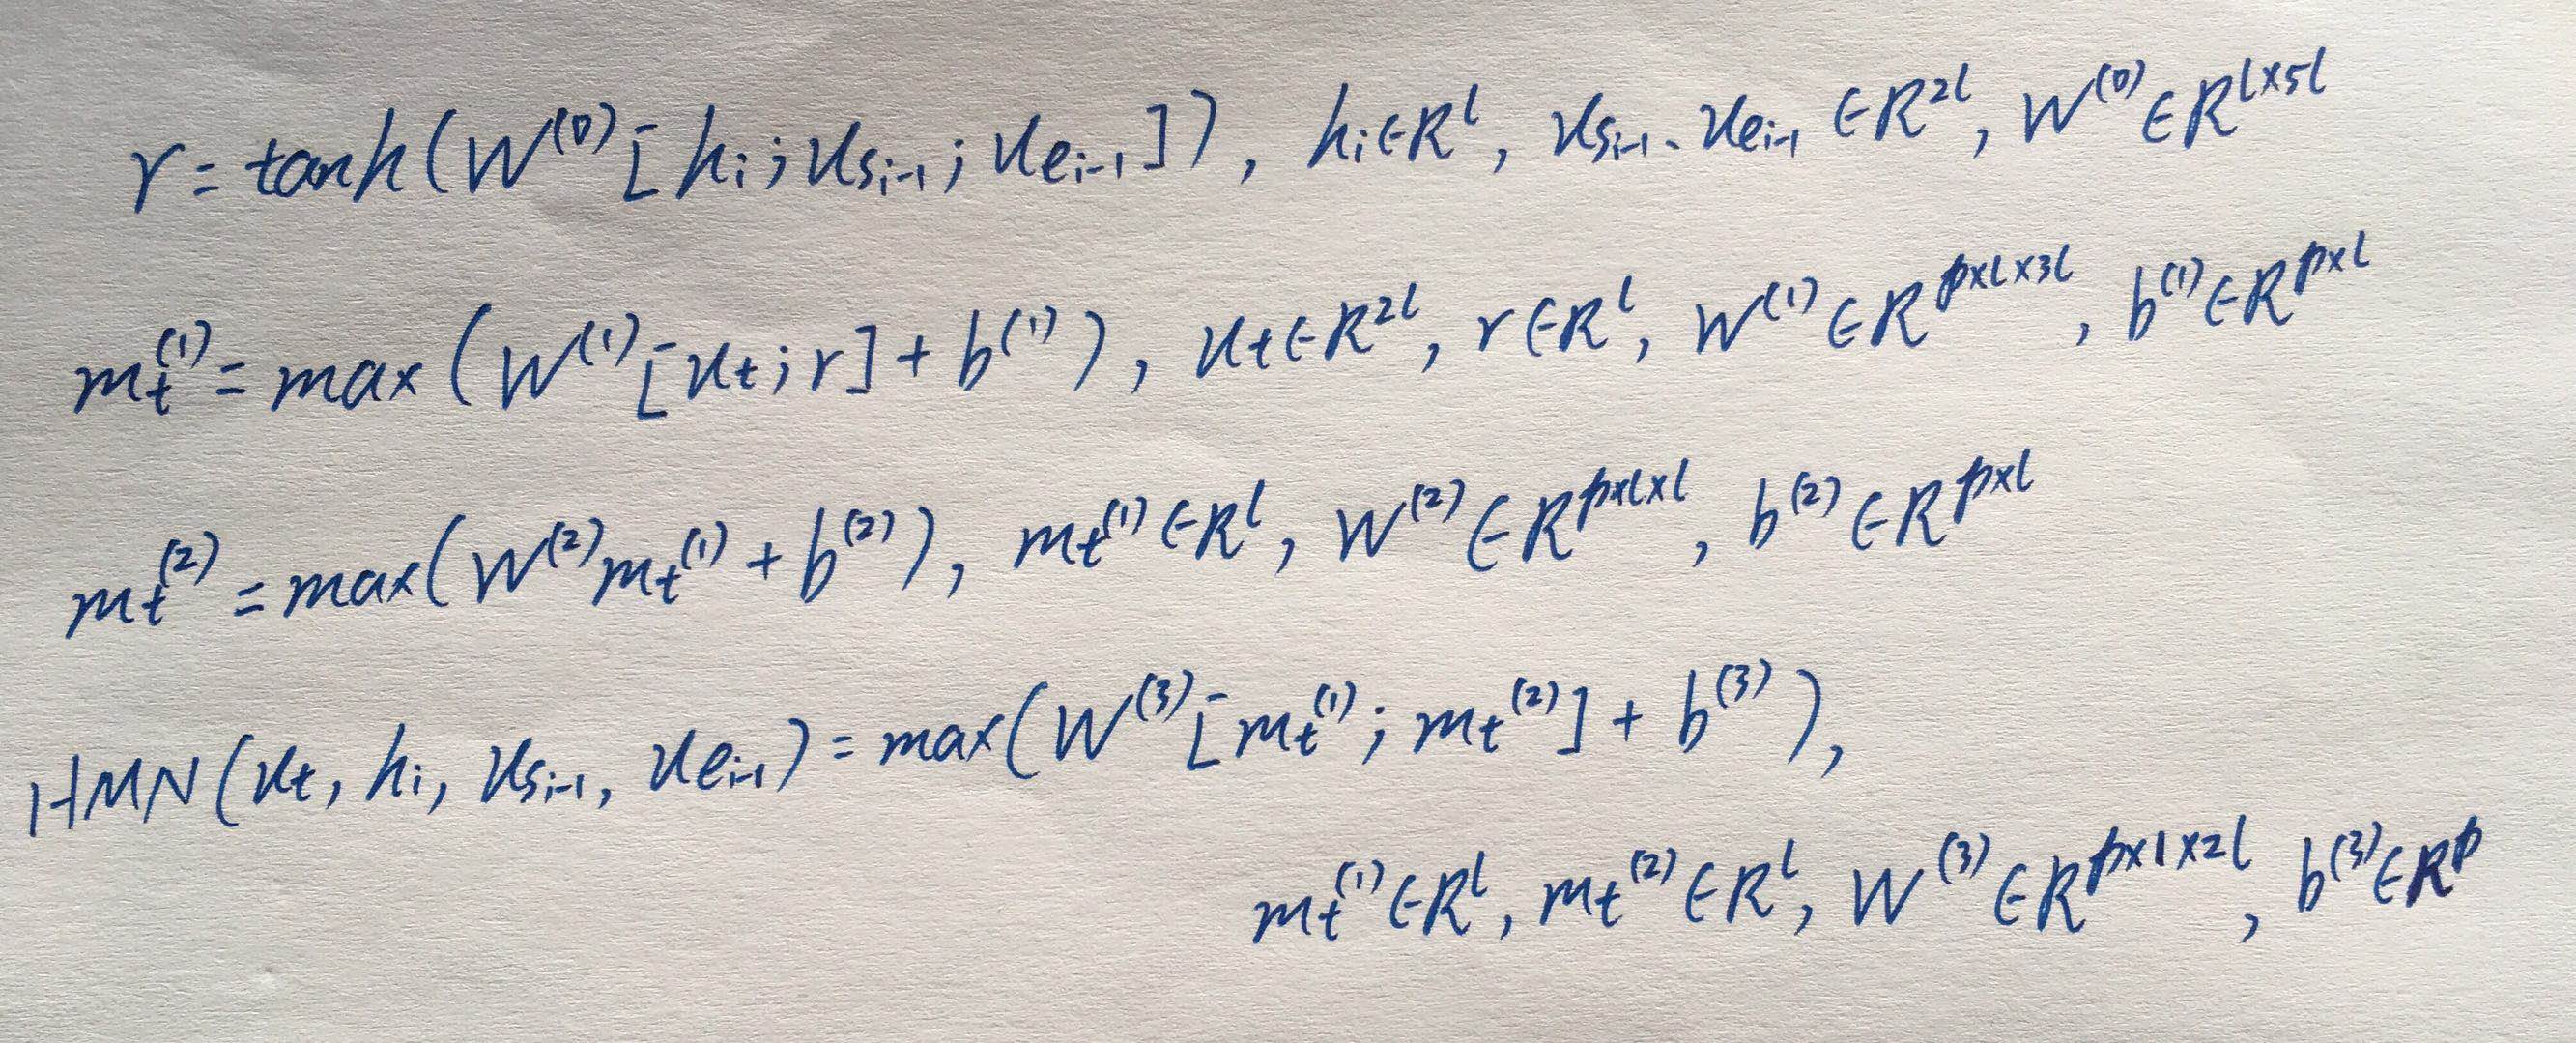 r = tanh(W^{(0)}[h_i; u_{s_{i-1}}; u_{e_{i-1}}]), h_i ∈ R^l, u_{s_{i-1}}、u_{e_{i-1}} ∈ R^{2l}, W^{(0)} ∈ R^{l×5l}
m_t^{(1)} = max(W^{(1)}[u_t; r] + b^{(1)}), u_t ∈ R^{2l}, r ∈ R^l, W^{(1)} ∈ R^{p×l×3l}, b^{(1)} ∈ R^{p×l}
m_t^{(2)} = max(W^{(2)} m_t^{(1)} + b^{(2)}), m_t^{(1)} ∈ R^l, W^{(2)} ∈ R^{p×l×l}, b^{(2)} ∈ R^{p×l}
HMN(u_t, h_i, u_{s_{i-1}}, u_{e_{i-1}}) = max(W^{(3)}[m_t^{(1)}; m_t^{(2)}] + b^{(3)}),
m_t^{(1)} ∈ R^l, m_t^{(2)} ∈ R^l, W^{(3)} ∈ R^{p×1×2l}, b^{(3)} ∈ R^p